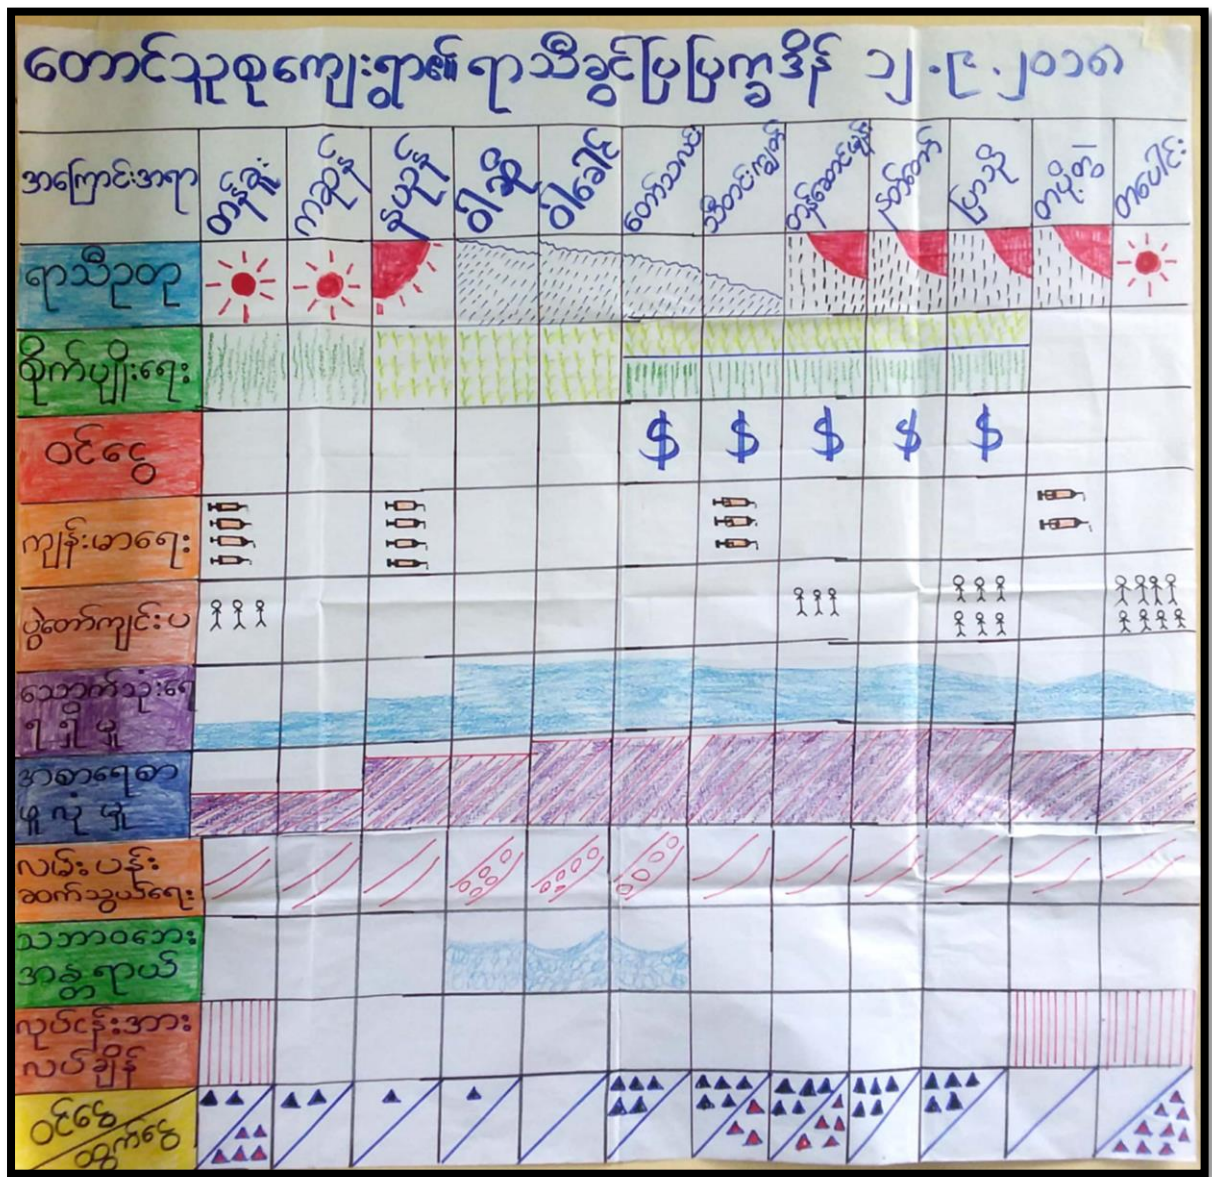 တောင်သူစုကျေးရွာ၏ ရာသီခွင်ပြပြက္ခဒိန် ၁၂.၉.၂၀၁၈
အကြောင်းအရာ တန်ခူး ကဆုန် နယုန် ဝါဆို ဝါခေါင် တော်သလင်း သီတင်းကျွတ် တန်ဆောင်မုန်း နတ်တော် ပြာသို တပို့တွဲ တပေါင်း
ရာသီဥတု
စိုက်ပျိုးရေး
ဝင်ငွေ
$ $ $ $ $
ကျန်းမာရေး
ပွဲတော်ကျင်းပ
သောက်သုံးရေ
ရရှိမှု
အစားရေစာ
ဖူလုံမှု
လမ်းပန်း
ဆက်သွယ်ရေး
သဘာဝဘေး
အန္တရာယ်
လုပ်ငန်းအား
လပ်ချိန်
ဝင်ငွေ
ထွက်ငွေ